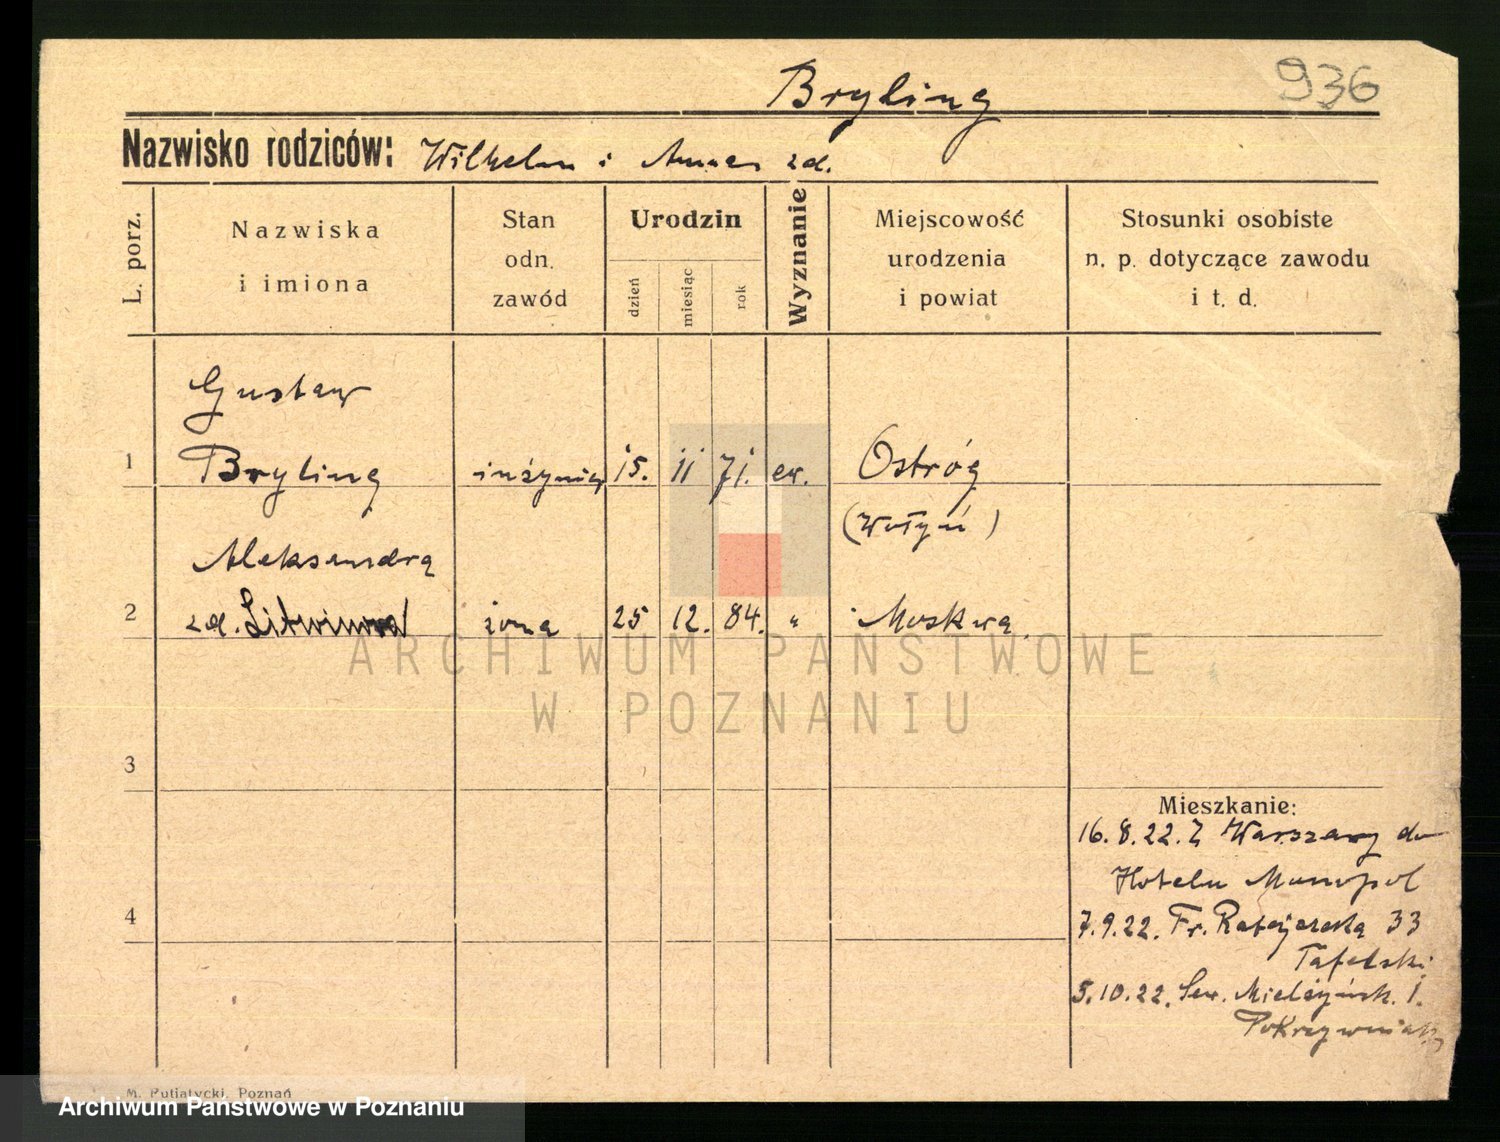 Bryling
936
Nazwisko rodziców: Wilhelm i Anna zd.
L. porz.
Nazwiska
i imiona
Stan
odn.
zawód
Urodzin
dzień
miesiąc
rok
Wyznanie
Miejscowość
urodzenia
i powiat
Stosunki osobiste
n. p. dotyczące zawodu
i t. d.
Gustaw
1 Bryling inżynier 15. 11 71. ew. Ostróg
(Wołyń)
Aleksandra
2 zd. Litwinowa żona 25 12. 84. " Moskwa
ARCHIWUM PAŃSTWOWE
W POZNANIU
3
Mieszkanie:
16.8.22. Z Warszawy do
Hotelu Monopol
4
7.9.22. Fr. Ratajczaka 33
Tafelski
5.10.22. Sew. Mielżyńsk. 1.
Pokrzywniak
M. Putiatycki, Poznań
Archiwum Państwowe w Poznaniu